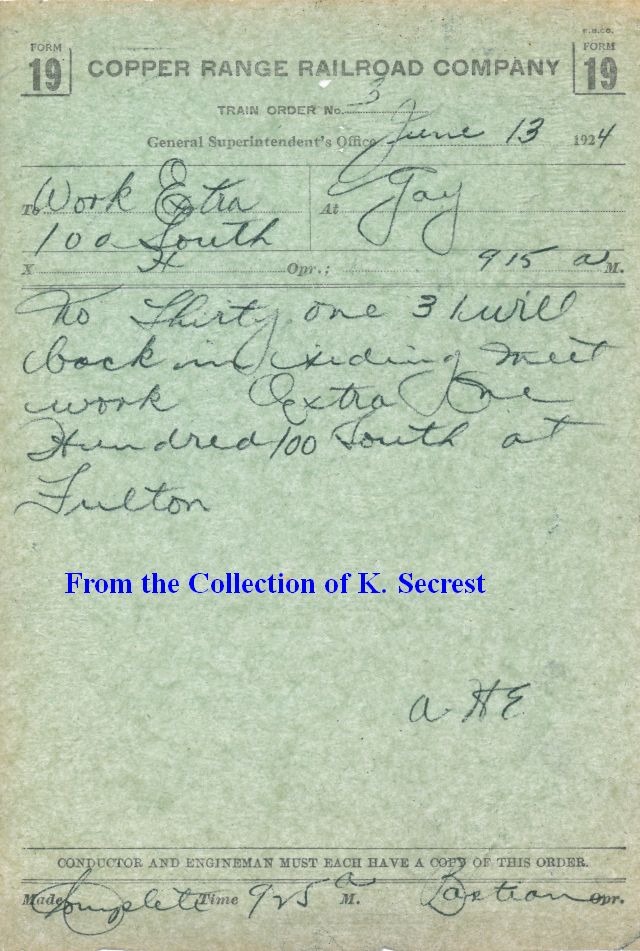 F.B.CO.
FORM 19 COPPER RANGE RAILROAD COMPANY FORM 19
TRAIN ORDER No. 3
General Superintendent's Office June 13 1924
To Work Extra At Gay
100 South
X H Opr.; 915 a M.
No Thirty one 31 will
back in siding meet
work Extra One
Hundred 100 South at
Fulton
From the Collection of K. Secrest
a H E
CONDUCTOR AND ENGINEMAN MUST EACH HAVE A COPY OF THIS ORDER.
Made Complete Time 925 a M. Bastian Opr.